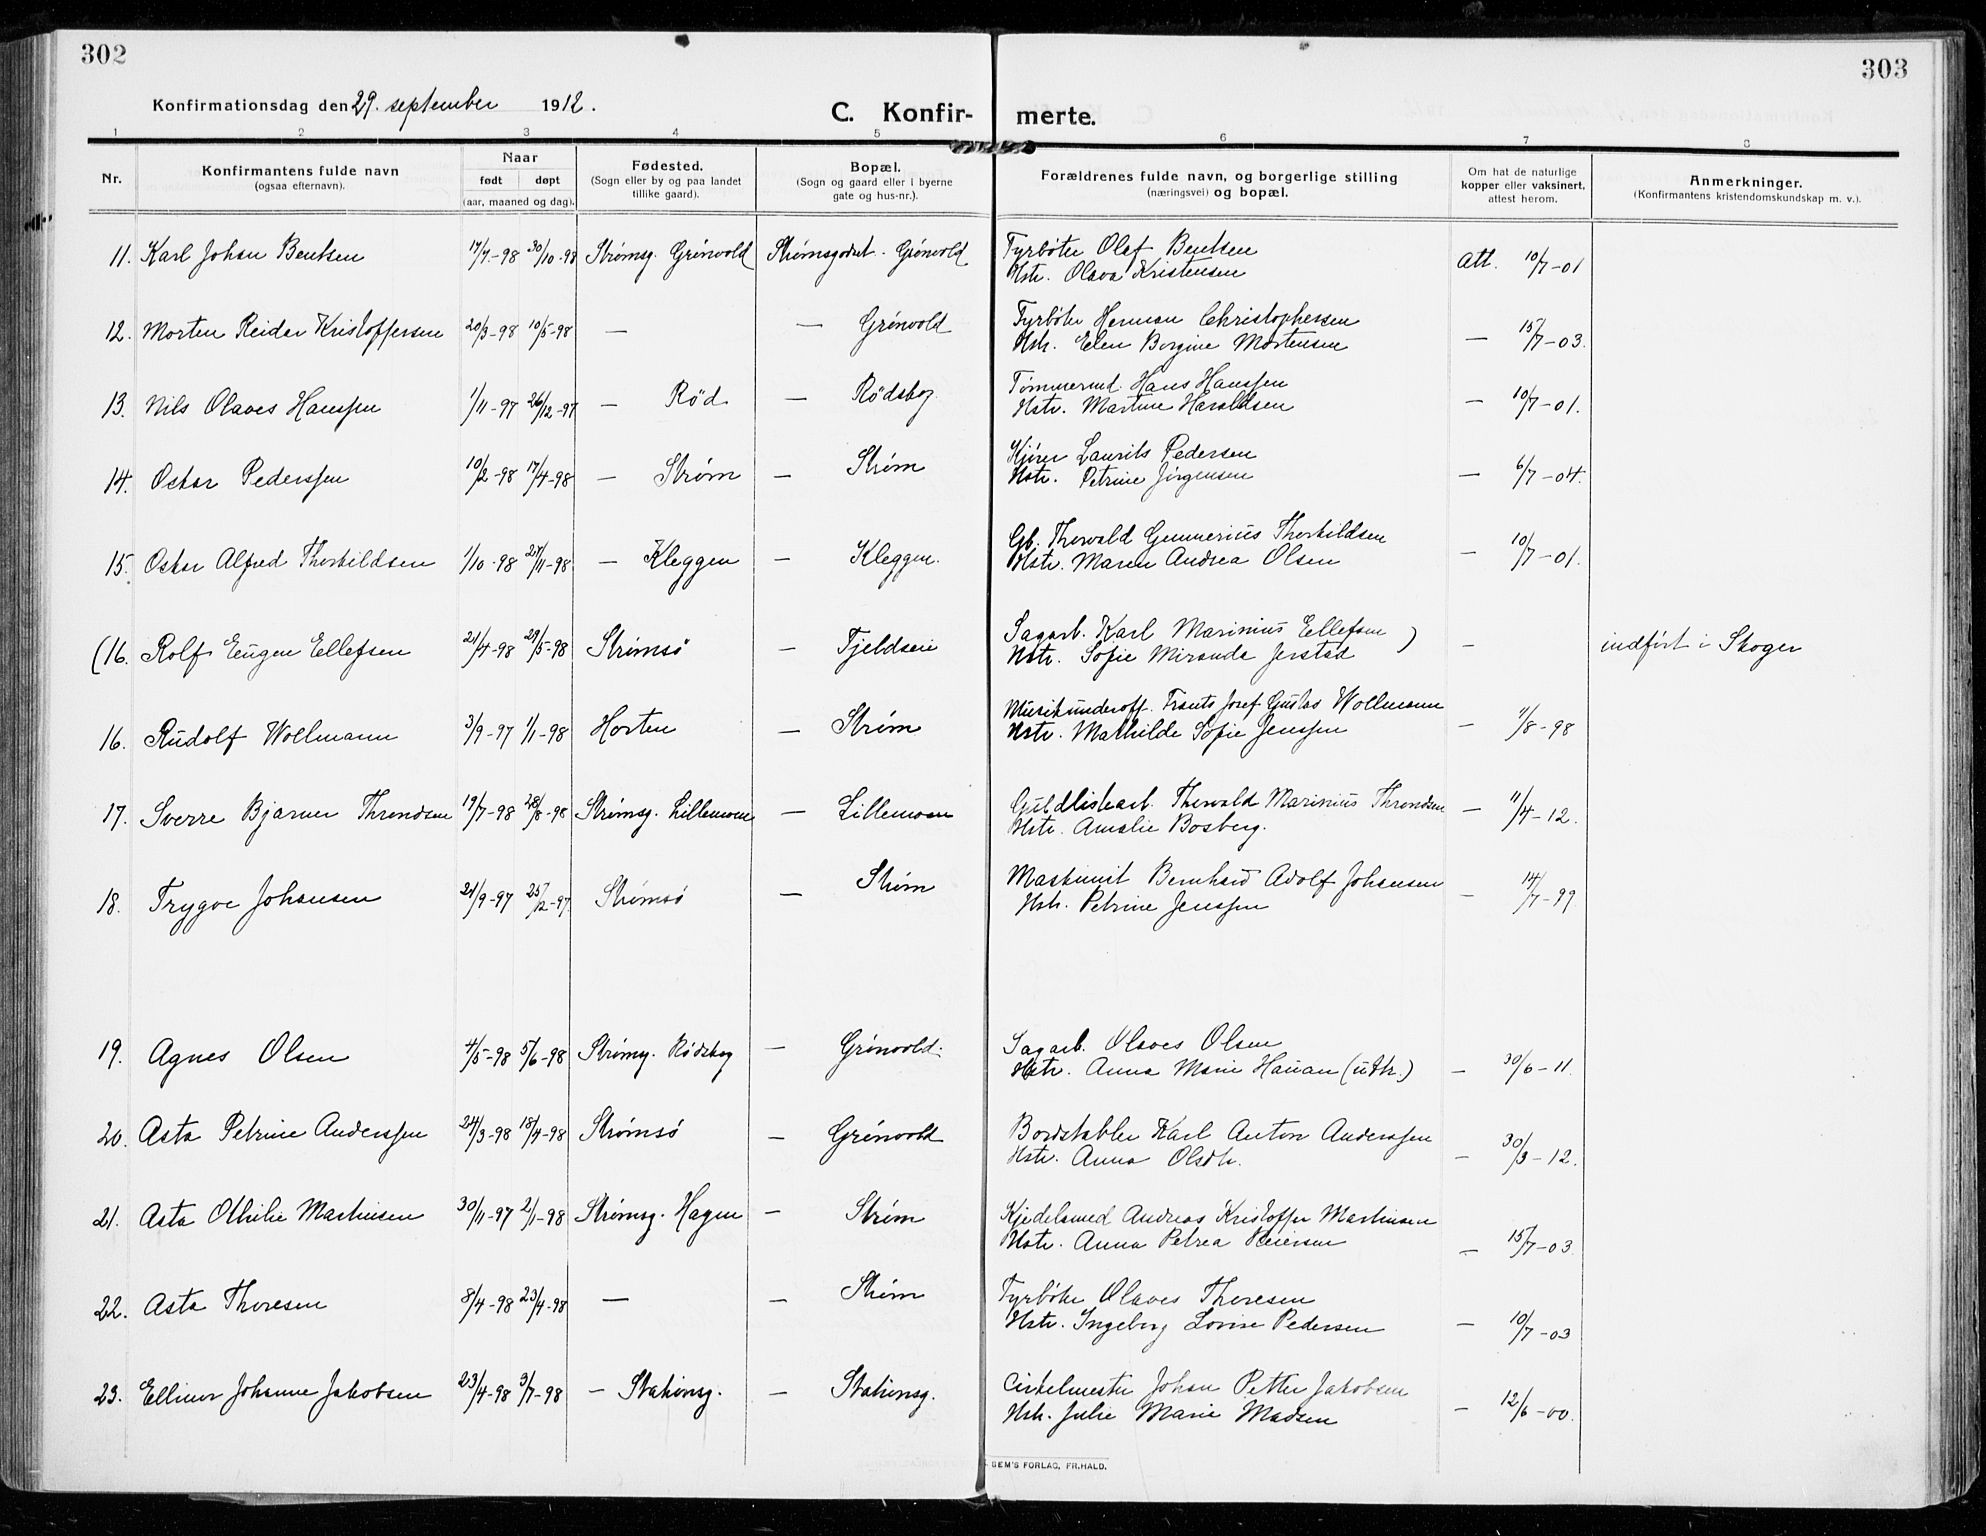 302
303
Konfirmationsdag den 29. september 1912.
C. Konfir-
merte.
1 2 3 4 5 6 7 8
Nr.
Konfirmantens fulde navn
(ogsaa efternavn).
Naar
født døpt
(aar, maaned og dag).
Fødested.
(Sogn eller by og paa landet
tillike gaard).
Bopæl.
(Sogn og gaard eller i byerne
gate og hus-nr.).
Forældrenes fulde navn, og borgerlige stilling
(næringsvei) og bopæl.
Om hat de naturlige
kopper eller vaksinert,
attest herom.
Anmerkninger.
(Konfirmantens kristendomskundskap m. v.).
11. Karl Johan Bentsen 17/7-98 30/10-98 Strømsg. Grönvold Strömsgodset. Grönvold Fyrböter Olaf Bentsen
Hstr. Olava Kristensen Att. 10/7-01
12. Morten Reidar Kristoffersen 20/3-98 10/5-98 — — Grönvold Fyrböter Herman Christophersen
Hstr. Elen Borgine Mortensen — 15/7-03.
13. Nils Olaves Hanssen 1/11-97 26/12-97 — Rød — Rødsbog Tømmermd. Hans Hanssen
Hstr. Martine Haraldsen — 10/7-01.
14. Oskar Pederssen 10/2-98 17/4-98 — Strøm — Strøm Kjörer Laurits Pedersen
Hstr. Petrine Jörgensen — 6/7-04.
15. Oskar Alfred Thorkildsen 1/10-98 27/11-98 — Kleggen — Kleggen. Gb. Thorvald Gunnerius Thorkildsen
Hstr. Maren Andrea Olsen — 10/7-01.
(16. Rolf Eugen Ellefsen 21/4-98 29/5-98 Strömsö — Fjeldseie Sagarb. Karl Marinius Ellefsen )
Hstr. Sofie Miranda Jerstad — indført i Skoger
16. Rudolf Wollmann 3/9-97 1/1-98 Horten — Strøm Musikunderoff. Frants Josef Gustav Wollmann
Hstr. Mathilde Sofie Jenssen — 11/8-98
17. Sverre Bjarne Throndsen 19/7-98 28/8-98 Strømsg. Lillemoen — Lillemoen Guldlistearb. Thorvald Marinius Throndsen
Hstr. Amalie Bosberg. — 11/4-12.
18. Trygve Johansen 21/9-97 25/12-97 Strömsö — Strøm Maskinist Bernhard Adolf Johansen
Hstr. Petrine Jenssen — 14/7-99
19. Agnes Olsen 4/5-98 5/6-98 Strömsg. Rødsbog — Grönvold. Sagarb. Olaves Olsen
Hstr. Anna Marie Hauan (uth.) — 30/6-11.
20. Asta Petrine Anderssen 24/3-98 18/4-98 Strömsö — Grönvold Bordstabler Karl Anton Anderssen
Hstr. Anna Olsdtr. — 30/3-12.
21. Asta Othilie Martinsen 30/11-97 2/1-98 Strømsg. Hagen — Strøm Kjedelsmed Andreas Kristoffer Martinsen
Hstr. Anna Petrea Reiersen — 15/7-03.
22. Asta Thoresen 8/4-98 23/4-98 — — Strøm Fyrböter Olaves Thoresen
Hstr. Ingeborg Lovise Pedersen — 10/7-03
23. Ellinor Johanne Jakobsen 23/4-98 3/7-98 — Stationsg. — Stationsg. Cirkelmester Johan Petter Jakobsen
Hstr. Julie Marie Madsen — 12/6-00.
SEM'S FORLAG, FR.HALD.